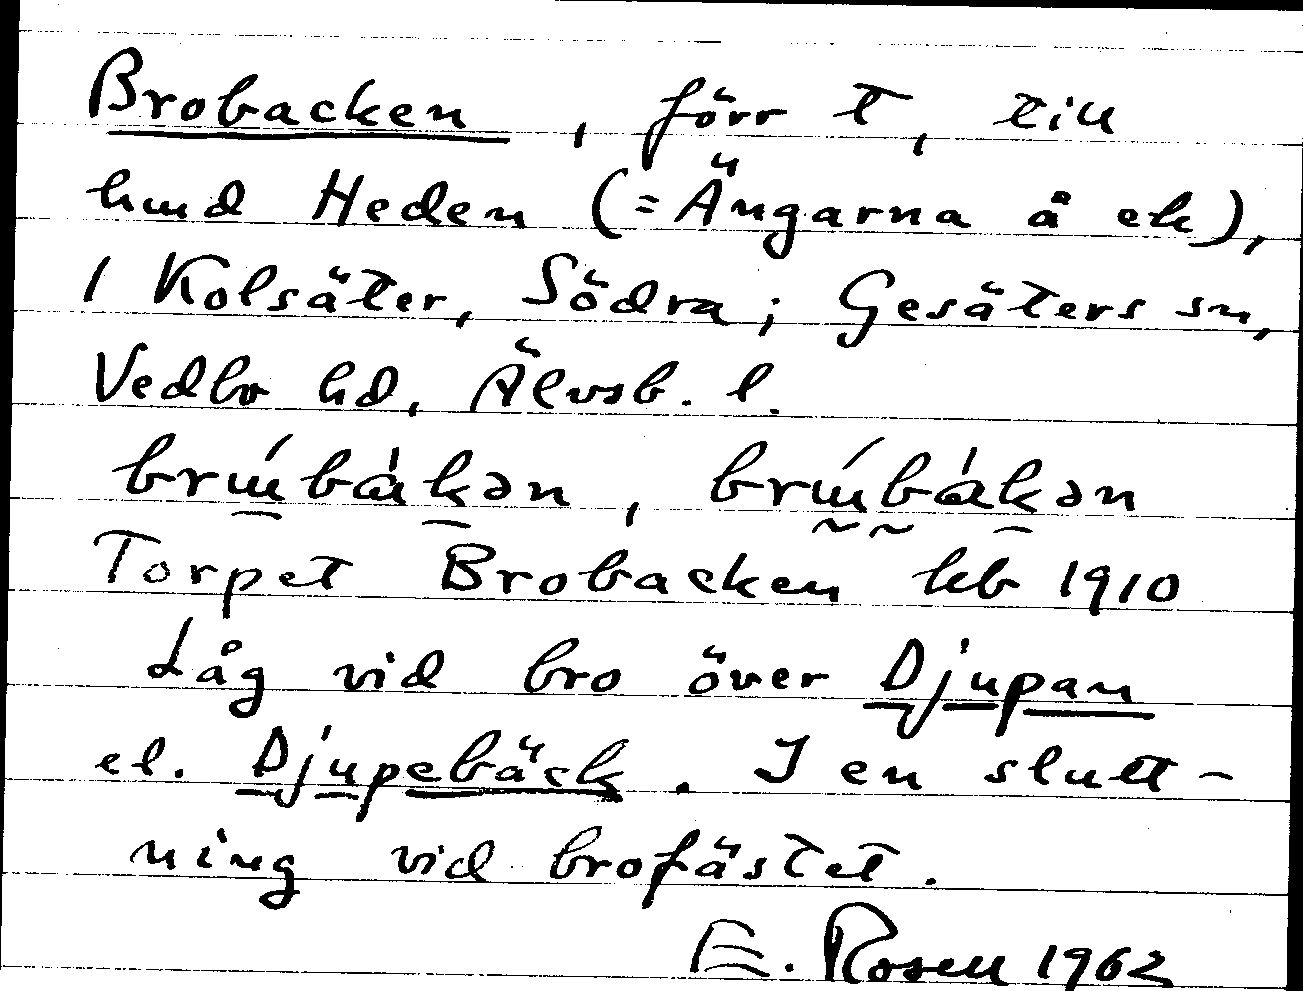 Brobacken, förr t, till
hmd Heden (= Ängarna å ek),
1 Kolsäter, Södra; Gesäters sn,
Vedbo hd, Älvsb. l.
Torpet Brobacken hb 1910
Låg vid bro över Djupan
el. Djupebäck. I en slutt-
ning vid brofästet.
E. Rosell 1962